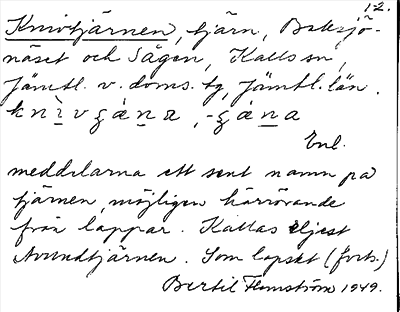 12.
Knivtjärnen, tjärn, Baksjö-
näset och Sågen, Kalls sn,
Jämtl. v. doms. tg, Jämtl. län.
Enl.
meddelarna ett sent namn på
tjärnen, möjligen härrörande
från lappar. Kallas eljest
tjärnen. Som lapskt (forts.)
Bertil Flemström 1949.